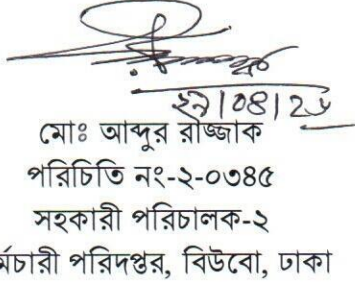 মোঃ আব্দুর রাজ্জাক
পরিচিতি নং-২-০৩৪৫
সহকারী পরিচালক-২
র্মচারী পরিদপ্তর, বিউবো, ঢাকা